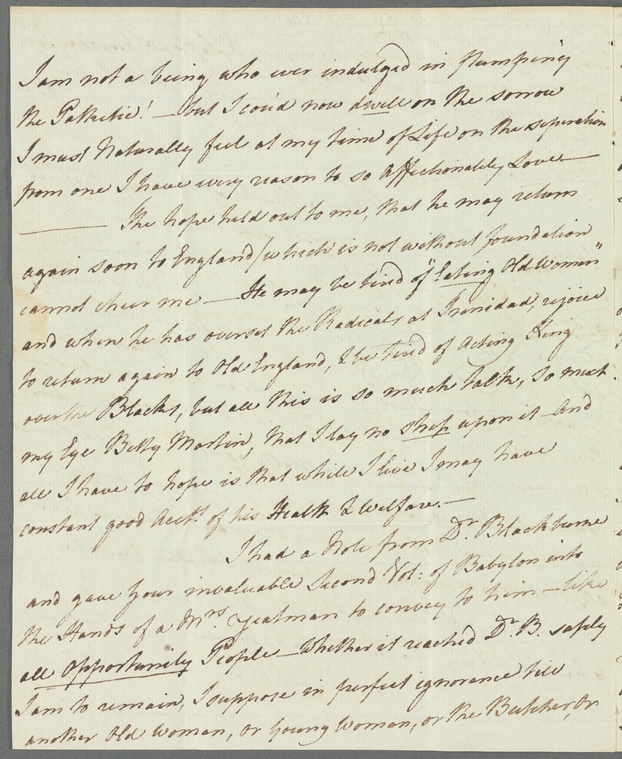 I am not a being who ever indulged in pumping
the Pathetic! — but I cou'd now dwell on the sorrow
I must Naturally feel at my time of Life on the seperation
from one I have every reason to so affectionately Love —
—— The hope held out to me, that he may return
again soon to England (which is not without foundation
cannot cheer me — He may be tired of "Eating Old Women"
and when he has overset the Radicals at Trinidad, rejoice
to return again to Old England, & be tired of Acting King
over the Blacks, but all this is so much talk, so much
my Eye Betty Martin, that I lay no stress upon it — And
all I have to hope is that while I live I may have
constant good Acct. of his Health & Welfare. —
I had a Note from Dr. Blackburne
and gave your invaluable Second Vol: of Babylon into
the Hands of a Mrs. Yeatman to convey to him — like
all Opportunity People — Whether it reached Dr. B. safely
I am to remain, I suppose in perfect ignorance till
another Old Woman, or Young Woman, or the Butcher, or